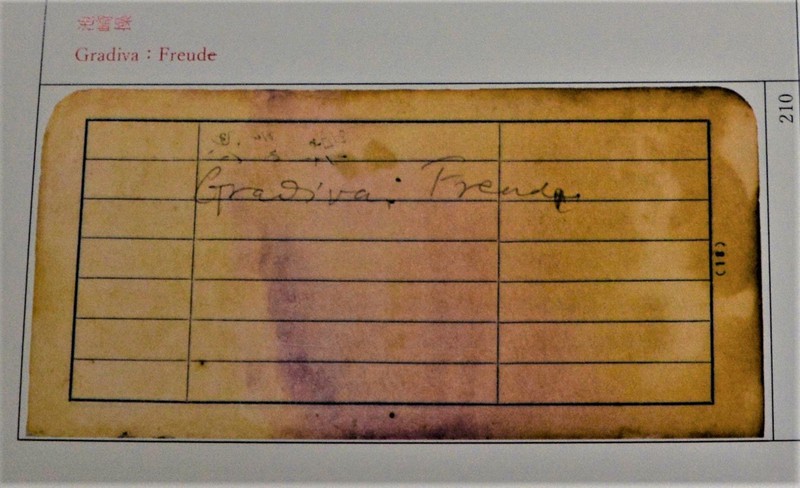 Gradiva：Freude
210
Gradiva: Freude
(18)